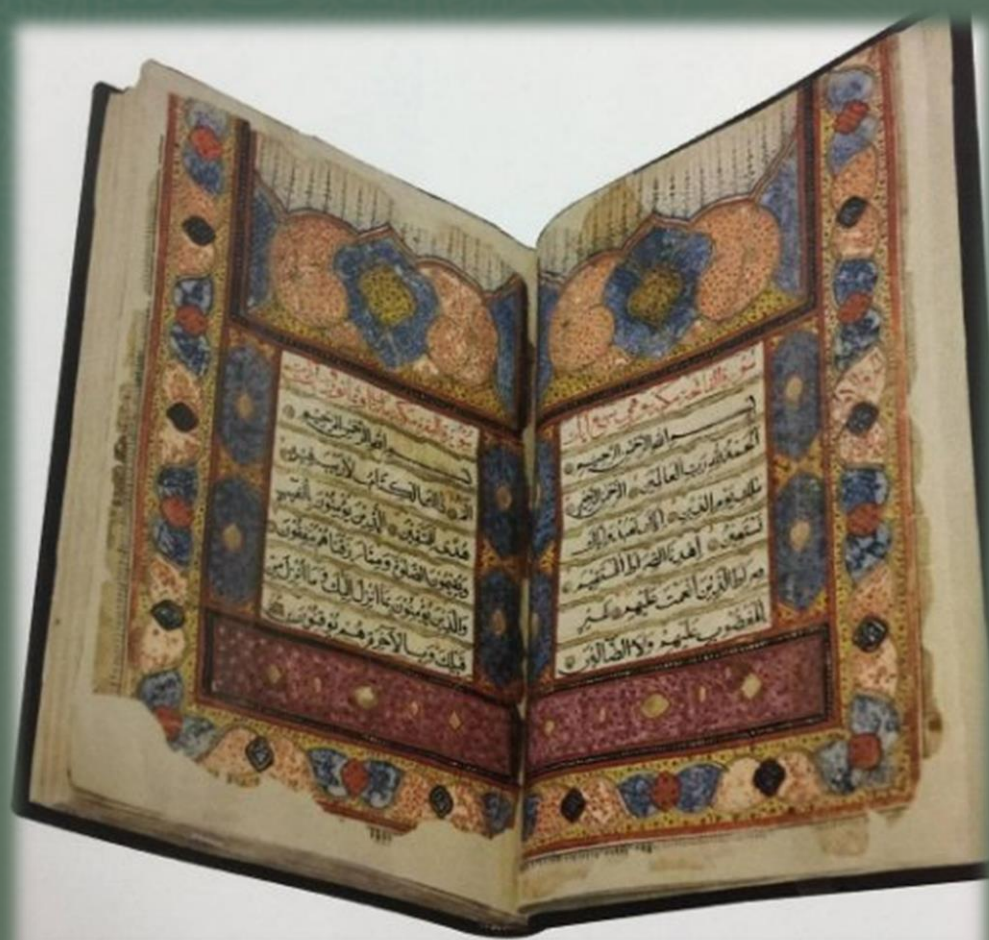 سورة الفاتحة مكية وهي سبع آيات
بسم الله الرحمن الرحيم
الحمد لله رب العالمين الرحمن الرحيم
ملك يوم الدين إياك نعبد وإياك
نستعين اهدنا الصراط المستقيم
صراط الذين أنعمت عليهم غير
المغضوب عليهم ولا الضالين
سورة البقرة
بسم الله الرحمن الرحيم
الم ذلك الكتاب لا ريب فيه
هدى للمتقين الذين يؤمنون بالغيب
ويقيمون الصلوة ومما رزقناهم ينفقون
والذين يؤمنون بما أنزل إليك وما أنزل من
قبلك وبالآخرة هم يوقنون